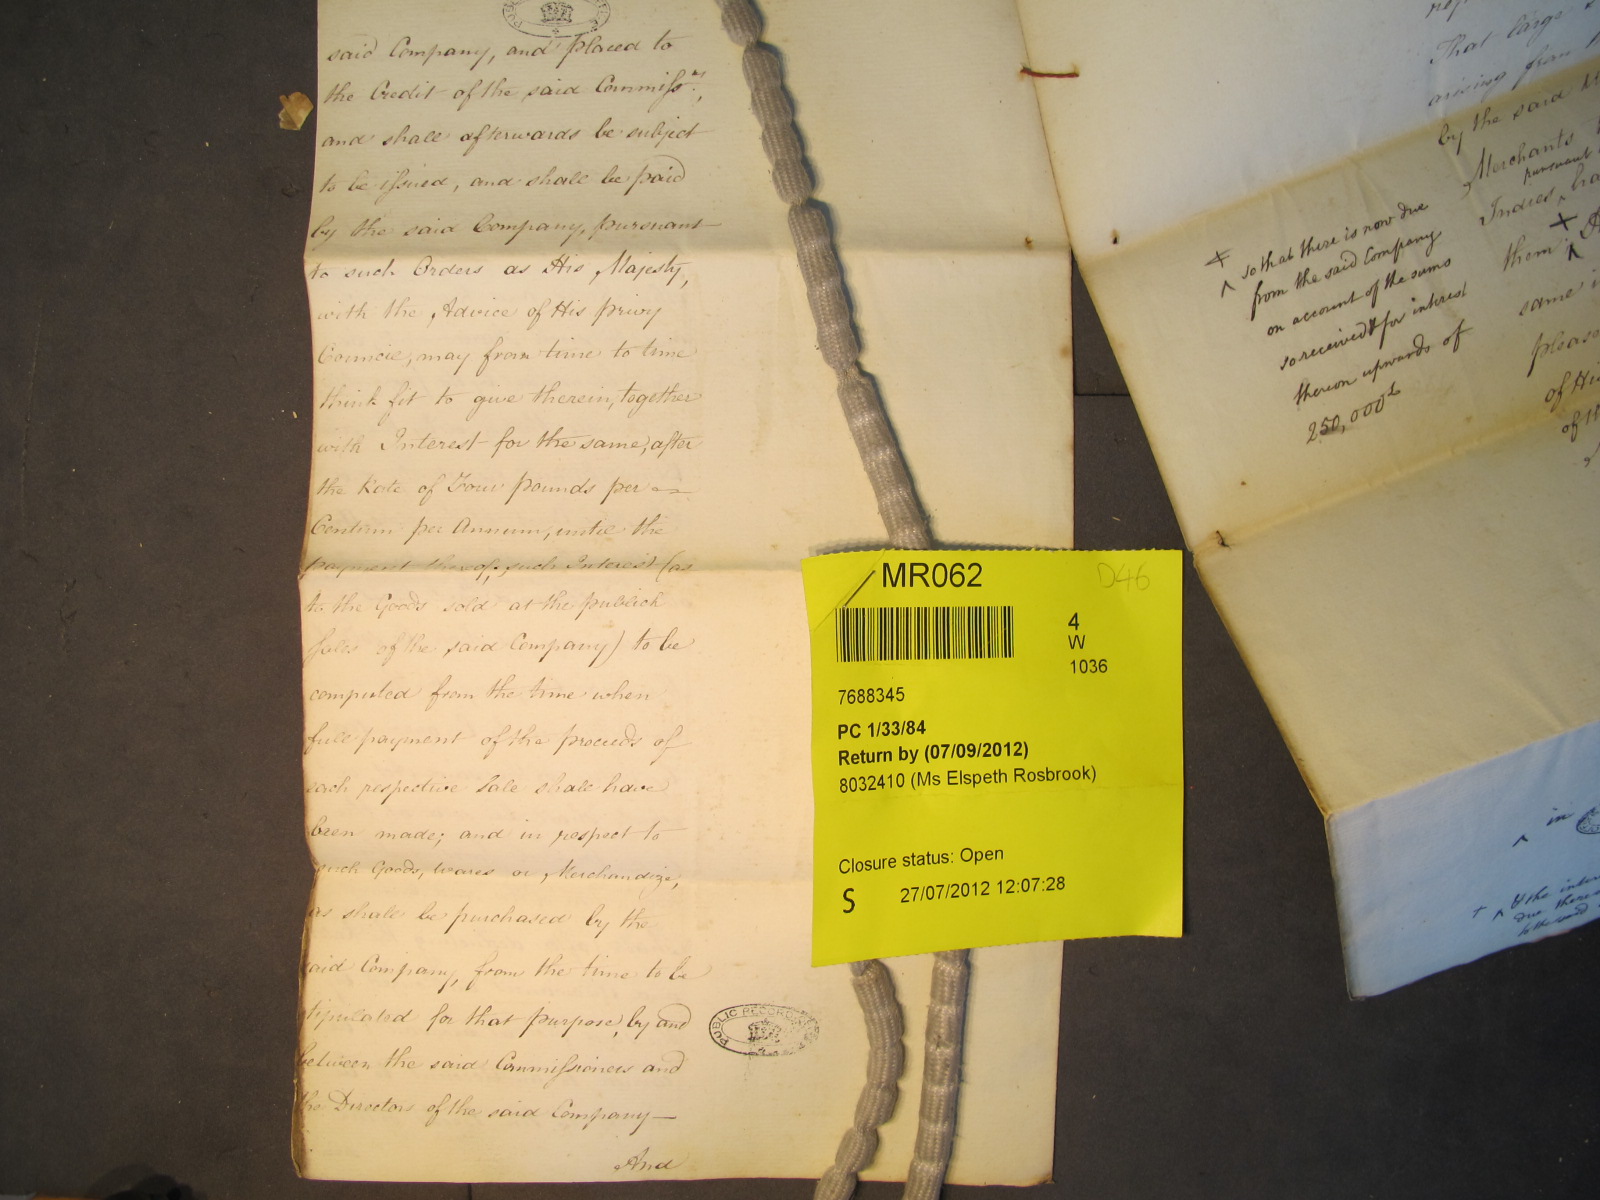 said Company, and placed to
the Credit of the said Commiss.rs,
and shall afterwards be subject
to be issued, and shall be paid
by the said Company, pursuant
to such Orders as His Majesty,
with the Advice of His privy
Council, may from time to time
think fit to give therein, together
with Interest for the same, after
the Rate of Four pounds per
Centum per Annum, until the
payment thereof, such Interest (as
to the Goods sold at the publick
Sales of the said Company) to be
computed from the time when
full payment of the proceeds of
each respective Sale shall have
been made; and in respect to
such Goods, wares or Merchandize,
as shall be purchased by the
said Company, from the time to be
stipulated for that purpose, by and
between the said Commissioners and
the Directors of the said Company—
And
PUBLIC RECORD
MR062
D46
4
W
1036
7688345
PC 1/33/84
Return by (07/09/2012)
8032410 (Ms Elspeth Rosbrook)
Closure status: Open
S 27/07/2012 12:07:28
That large
arising from
by the said
Merchants
pursuant
Indies,
them
same
please
of His
so that there is now due
from the said Company
on account of the sums
so received & for interest
thereon upwards of
250,000£
in
& the
due